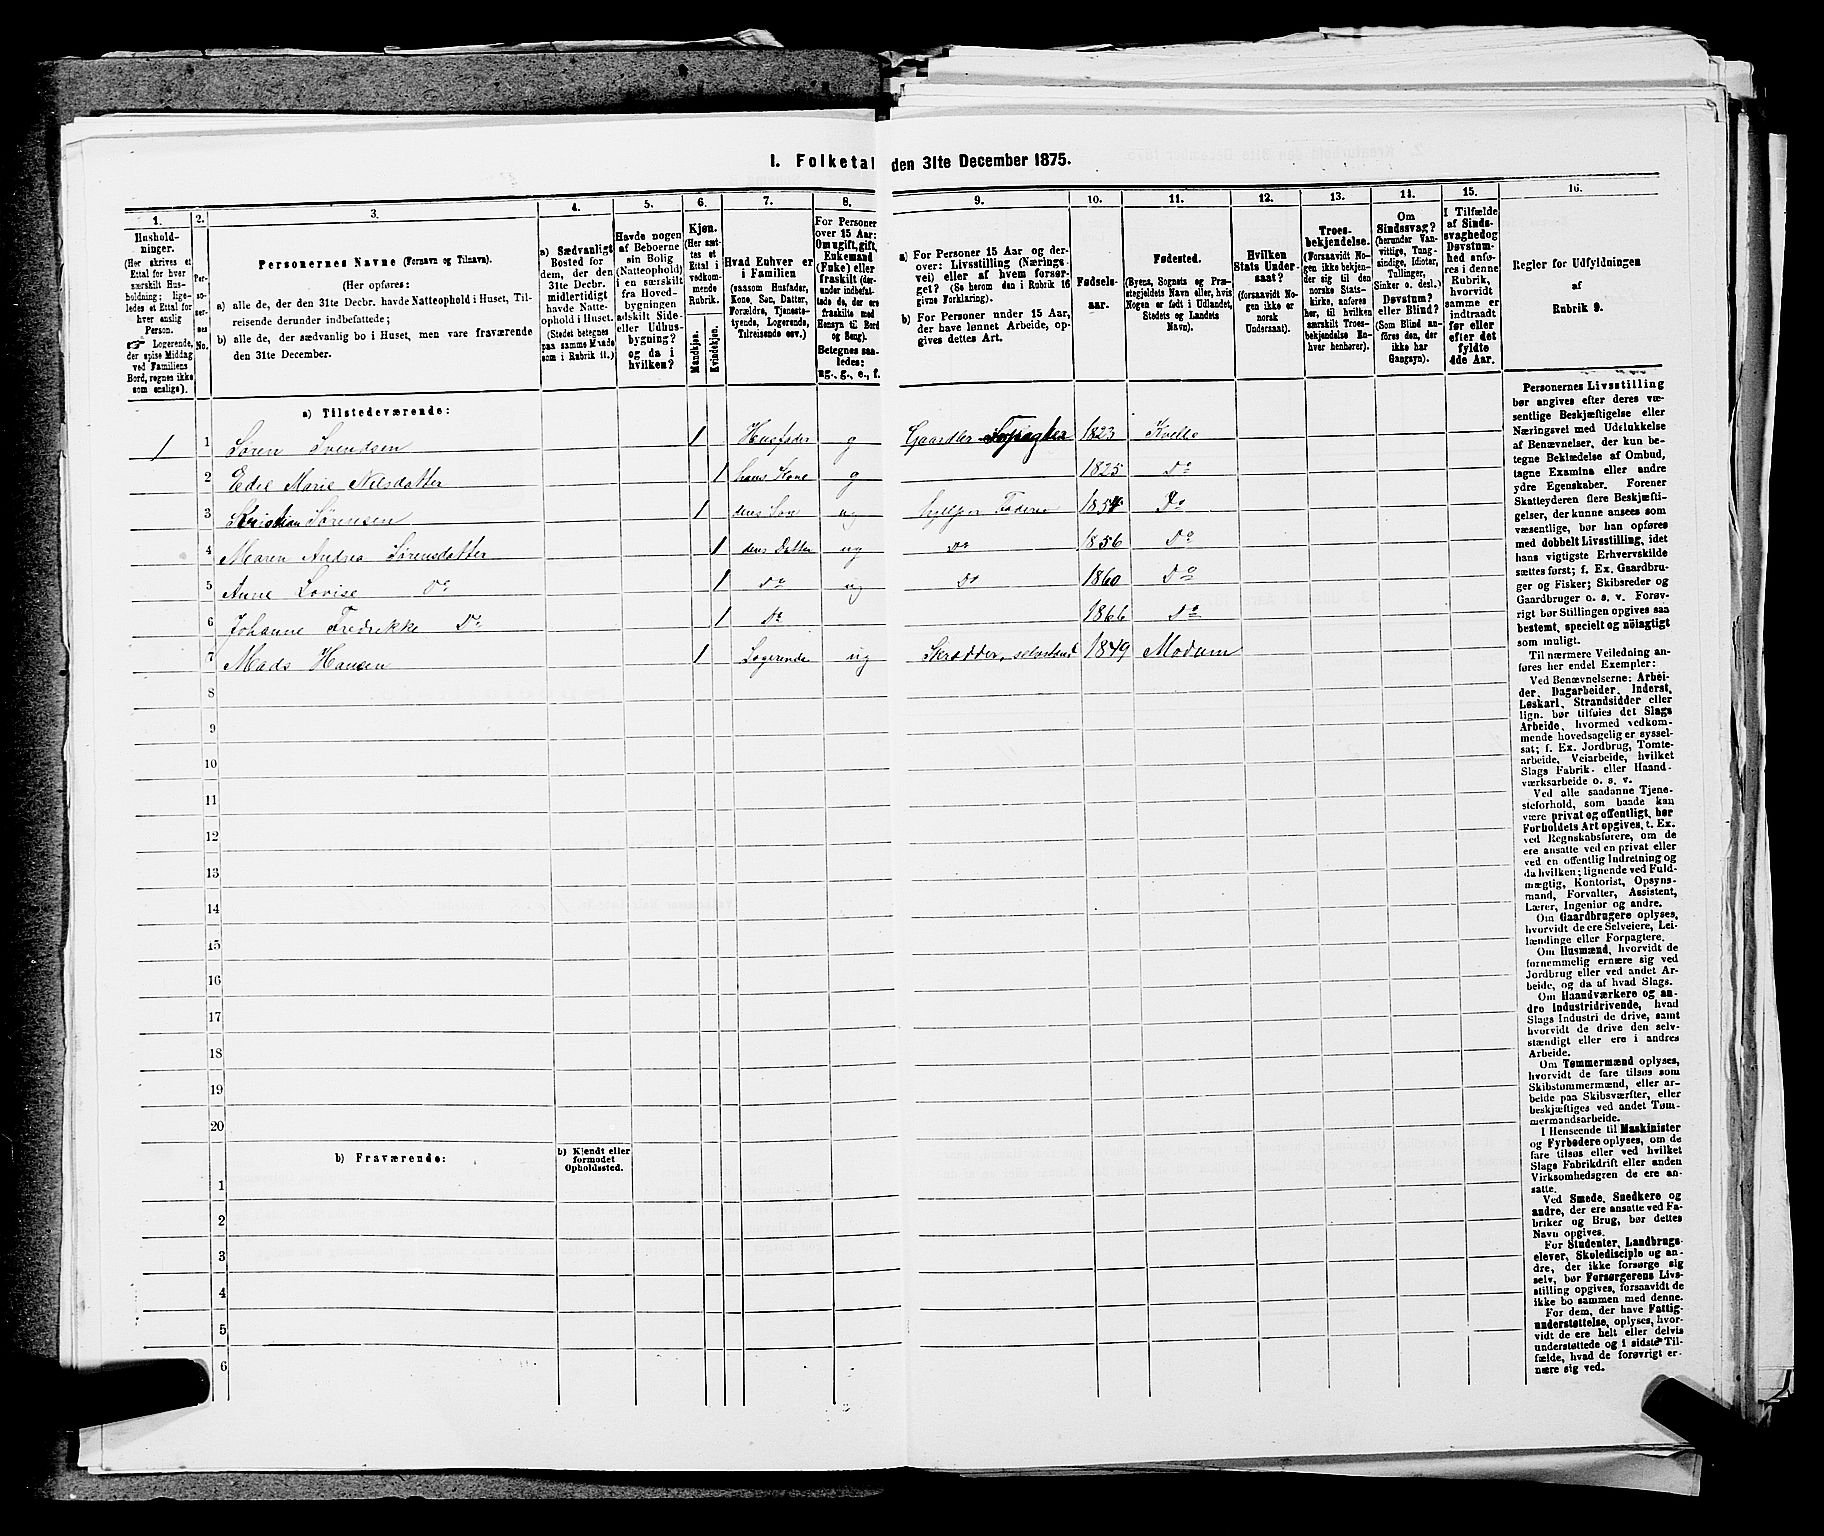 I. Folketal den 31te December 1875.
1. 2. 3. 4. 5. 6. 7. 8. 9. 10. 11. 12. 13. 14. 15. 16.
Hushold-
ninger.
(Her skrives et
Ettal for hver
særskilt Hus-
holdning; lige-
ledes et Ettal for
hver enslig
Person.
☞ Logerende,
der spise Middag
ved Familiens
Bord, regnes ikke
som enslige).
Per-
so-
ner-
nes
No.
Personernes Navne (Fornavn og Tilnavn).
(Her opføres:
a) alle de, der den 31te Decbr. havde Natteophold i Huset, Til-
reisende derunder indbefattede;
b) alle de, der sædvanlig bo i Huset, men vare fraværende
den 31te December.
a) Sædvanligt
Bosted for
dem, der den
31te Decbr.
midlertidigt
havde Natte-
ophold i Huset.
(Stedet betegnes
paa samme Maade
som i Rubrik 11.)
Havde nogen
af Beboerne
sin Bolig
(Natteophold)
i en særskilt
fra Hoved-
bygningen
adskilt Side-
eller Udhus-
bygning?
og da i
hvilken?
Kjøn.
(Her sæt-
tes et
Ettal i
vedkom-
mende
Rubrik.
Mandkjøn.
Kvindekjøn.
Hvad Enhver er
i Familien
(saasom Husfader,
Kone, Søn, Datter,
Forældre, Tjeneste-
tyende, Logerende,
Tilreisende osv.)
For Personer
over 15 Aar:
Om ugift, gift,
Enkemand
(Enke) eller
fraskilt (der-
under indbefat-
tede de, der ere
fraskilte med
Hensyn til Bord
og Seng).
Betegnes saa-
ledes:
ug., g., e., f.
a) For Personer 15 Aar og der-
over: Livsstilling (Nærings-
vei) eller af hvem forsør-
get? (Se herom den i Rubrik 16
givne Forklaring).
b) For Personer under 15 Aar,
der have lønnet Arbeide, op-
gives dettes Art.
Fødsels-
aar.
Fødested.
(Byens, Sognets og Præ-
stegjeldets Navn eller, hvis
Nogen er født i Udlandet,
Stedets og Landets
Navn).
Hvilken
Stats Under-
saat?
(forsaavidt No-
gen ikke er
norsk
Undersaat).
Troes-
bekjendelse.
(Forsaavidt No-
gen ikke bekjen-
der sig til den
norske Stats-
kirke, anføres
her, til hvilken
særskilt Troes-
bekjendelse En-
hver henhører).
Om
Sindssvag?
(herunder Van-
vittige, Tung-
sindige, Idioter,
Tullinger,
Sinker o. desl.)
Døvstum?
eller Blind?
(Som Blind an-
føres den, der
ikke har
Gangsyn).
I Tilfælde
af Sinds-
svaghed og
Døvstum-
hed anfø-
res i denne
Rubrik,
hvorvidt
samme er
indtraadt
før eller
efter det
fyldte
4de Aar.
Regler for Udfyldningen
af
Rubrik 9.
a) Tilstedeværende:
1 1 Søren Svendsen 1 Husfader g Gaardbr Forpagter 1823 Kvelle
2 Edel Marie Nilsdatter 1 hans Kone g 1825 Do
3 Kristian Sørensen 1 deres Søn ug hjelper Faderen 1854 Do
4 Maren Andrea Sørensdatter 1 deres Datter ug Do 1856 Do
5 Anne Lovise Do 1 Do ug Do 1860 Do
6 Johanne Fredrikke Do 1 Do 1866 Do
7 Mads Hansen 1 Logerende ug Skrædder, selvstænd 1849 Modum
8
9
10
11
12
13
14
15
16
17
18
19
20
b) Fraværende:
b) Kjendt eller
formodet
Opholdssted.
1
2
3
4
5
6
Personernes Livsstilling
bør angives efter deres væ-
sentlige Beskjæftigelse eller
Næringsvei med Udelukkelse
af Benævnelser, der kun be-
tegne Beklædelse af Ombud,
tagne Examina eller andre
ydre Egenskaber. Forener
Skatteyderen flere Beskjæfti-
gelser, der kunne ansees som
væsentlige, bør han opføres
med dobbelt Livsstilling, idet
hans vigtigste Erhvervskilde
sættes først; f. Ex. Gaardbru-
ger og Fisker; Skibsreder og
Gaardbruger o. s. v. Forøv-
rigt bør Stillingen opgives saa
bestemt, specielt og nøiagtigt
som muligt.
Til nærmere Veiledning an-
føres her endel Exempler:
Ved Benævnelserne: Arbei-
der, Dagarbeider, Inderst,
Løskarl, Strandsidder eller
lign. bør tilføies det Slags
Arbeide, hvormed vedkom-
mende hovedsagelig er syssel-
sat; f. Ex. Jordbrug, Tomte-
arbeide, Veiarbeide, hvilket
Slags Fabrik- eller Haand-
værksarbeide o. s. v.
Ved alle saadanne Tjene-
steforhold, som baade kan
være privat og offentligt, bør
Forholdets Art opgives, t. Ex.
ved Regnskabsførere, om de
ere ansatte ved en privat eller
ved en offentlig Indretning og
da hvilken; lignende ved Fuld-
mægtig, Kontorist, Opsyns-
mand, Forvalter, Assistent,
Lærer, Ingeniør og andre.
Om Gaardbrugere oplyses,
hvorvidt de ere Selveiere, Lei-
lændinge eller Forpagtere.
Om Husmænd, hvorvidt de
fornemmelig ernære sig ved
Jordbrug eller ved andet Ar-
beide, og da af hvad Slags.
Om Haandværkere og an-
dre Industridrivende, hvad
Slags Industri de drive, samt
hvorvidt de drive den selv-
stændigt eller ere i andres
Arbeide.
Om Tømmermænd oplyses,
hvorvidt de fare tilsøs som
Skibstømmermænd, eller ar-
beide paa Skibsværfter, eller
beskjæftiges ved andet Tøm-
mermandsarbeide.
I Henseende til Maskinister
og Fyrbødere oplyses, om de
fare tilsøs eller ved hvilket
Slags Fabrikdrift eller anden
Virksomhedsgren de ere an-
satte.
Ved Smede, Snedkere og
andre, der ere ansatte ved Fa-
briker og Brug, bør dettes
Navn opgives.
For Studenter, Landbrugs-
elever, Skoledisciple og an-
dre, der ikke forsørge sig
selv, bør Forsørgerens Livs-
stilling opgives, forsaavidt de
ikke bo sammen med denne.
For dem, der have Fattig-
understøttelse, oplyses, hvor-
vidt de ere helt eller delvis
understøttede og i sidste Til-
fælde, hvad de forøvrigt er-
nære sig ved.